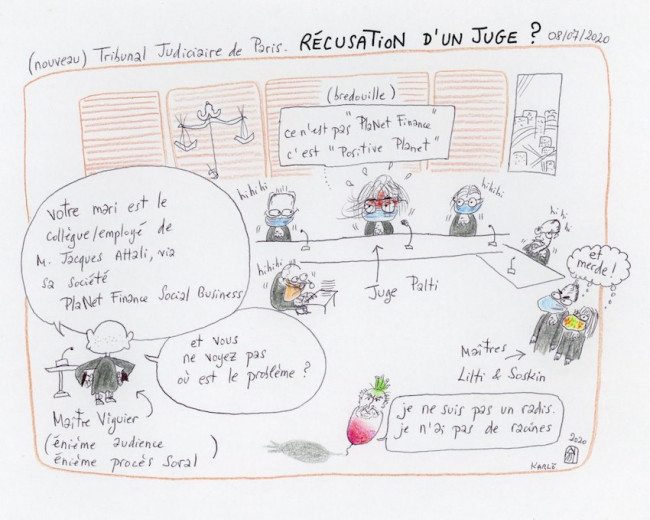 (nouveau) Tribunal Judiciaire de Paris. RÉCUSATION D'UN JUGE ? 08/07/2020
(bredouille)
ce n'est pas "PlaNet Finance"
c'est "Positive Planet"
hihihi
hihihi
hi hi
hi
hihihi
votre mari est le
collègue/employé de
M. Jacques Attali, via
sa société
PlaNet Finance Social Business
Juge Palti
et
merde !
et vous
ne voyez pas
où est le problème ?
Maîtres
Litti & Soskin
Maître Viguier
(énième audience
énième procès Soral)
je ne suis pas un radis.
je n'ai pas de racines
2020